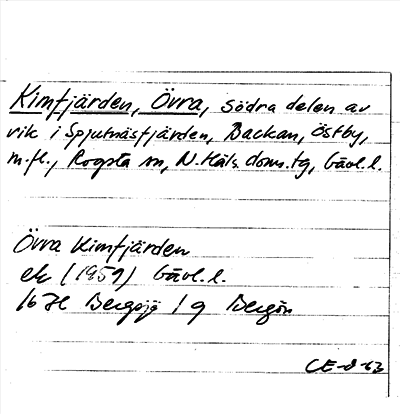 Kimfjärden, Övra, södra delen av
vik i Spjutnäsfjärden, Backan, Östby,
m.fl., Rogsta sn, N. Häls. doms. tg, Gävl. l.
Övra Kimfjärden
ek (1959) Gävl. l.
16 H Bergsjö / 9 Bergön
CE-d-63